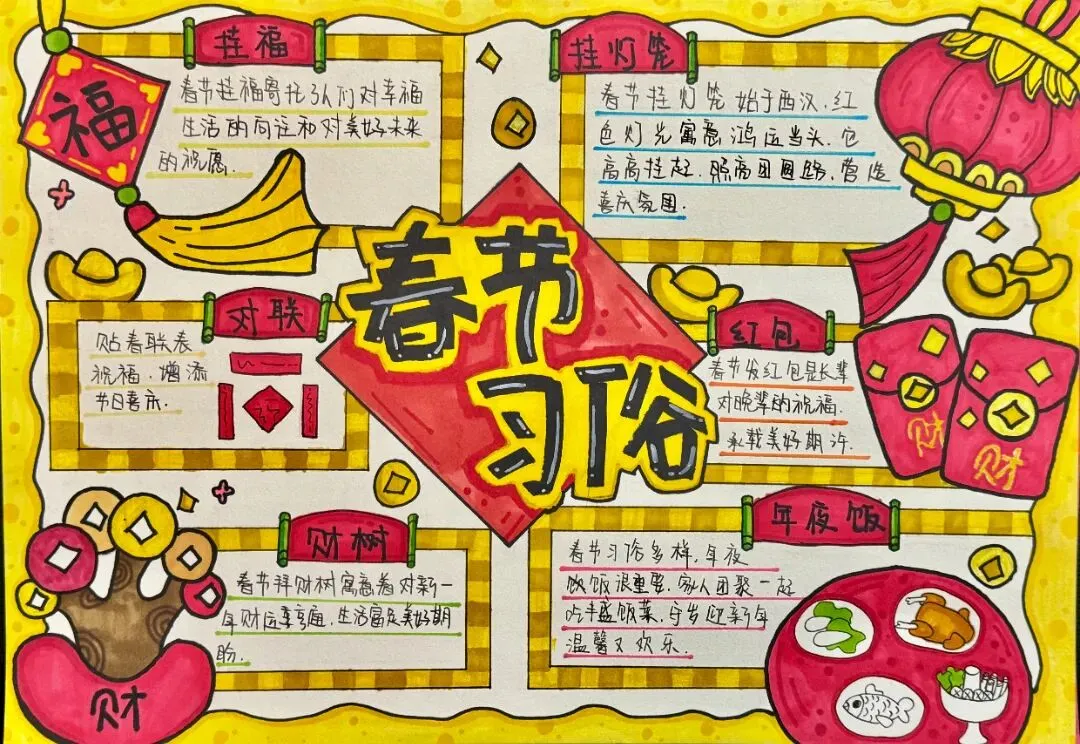 挂福
福
春节挂福寄托人们对幸福
生活的向往和对美好未来
的祝愿.
挂灯笼
春节挂灯笼始于西汉.红
色灯光寓意鸿运当头.它
高高挂起.照亮团圆路.营造
喜庆氛围.
春节
习俗
对联
贴春联表
祝福.增添
节日喜庆.
红包
春节发红包是长辈
对晚辈的祝福.
承载美好期许.
财
财
财树
春节拜财树寓意着对新一
年财运亨通.生活富足美好期
盼.
财
年夜饭
春节习俗多样.年夜
饭很重要.家人团聚一起
吃丰盛饭菜.守岁迎新年
温馨又欢乐.